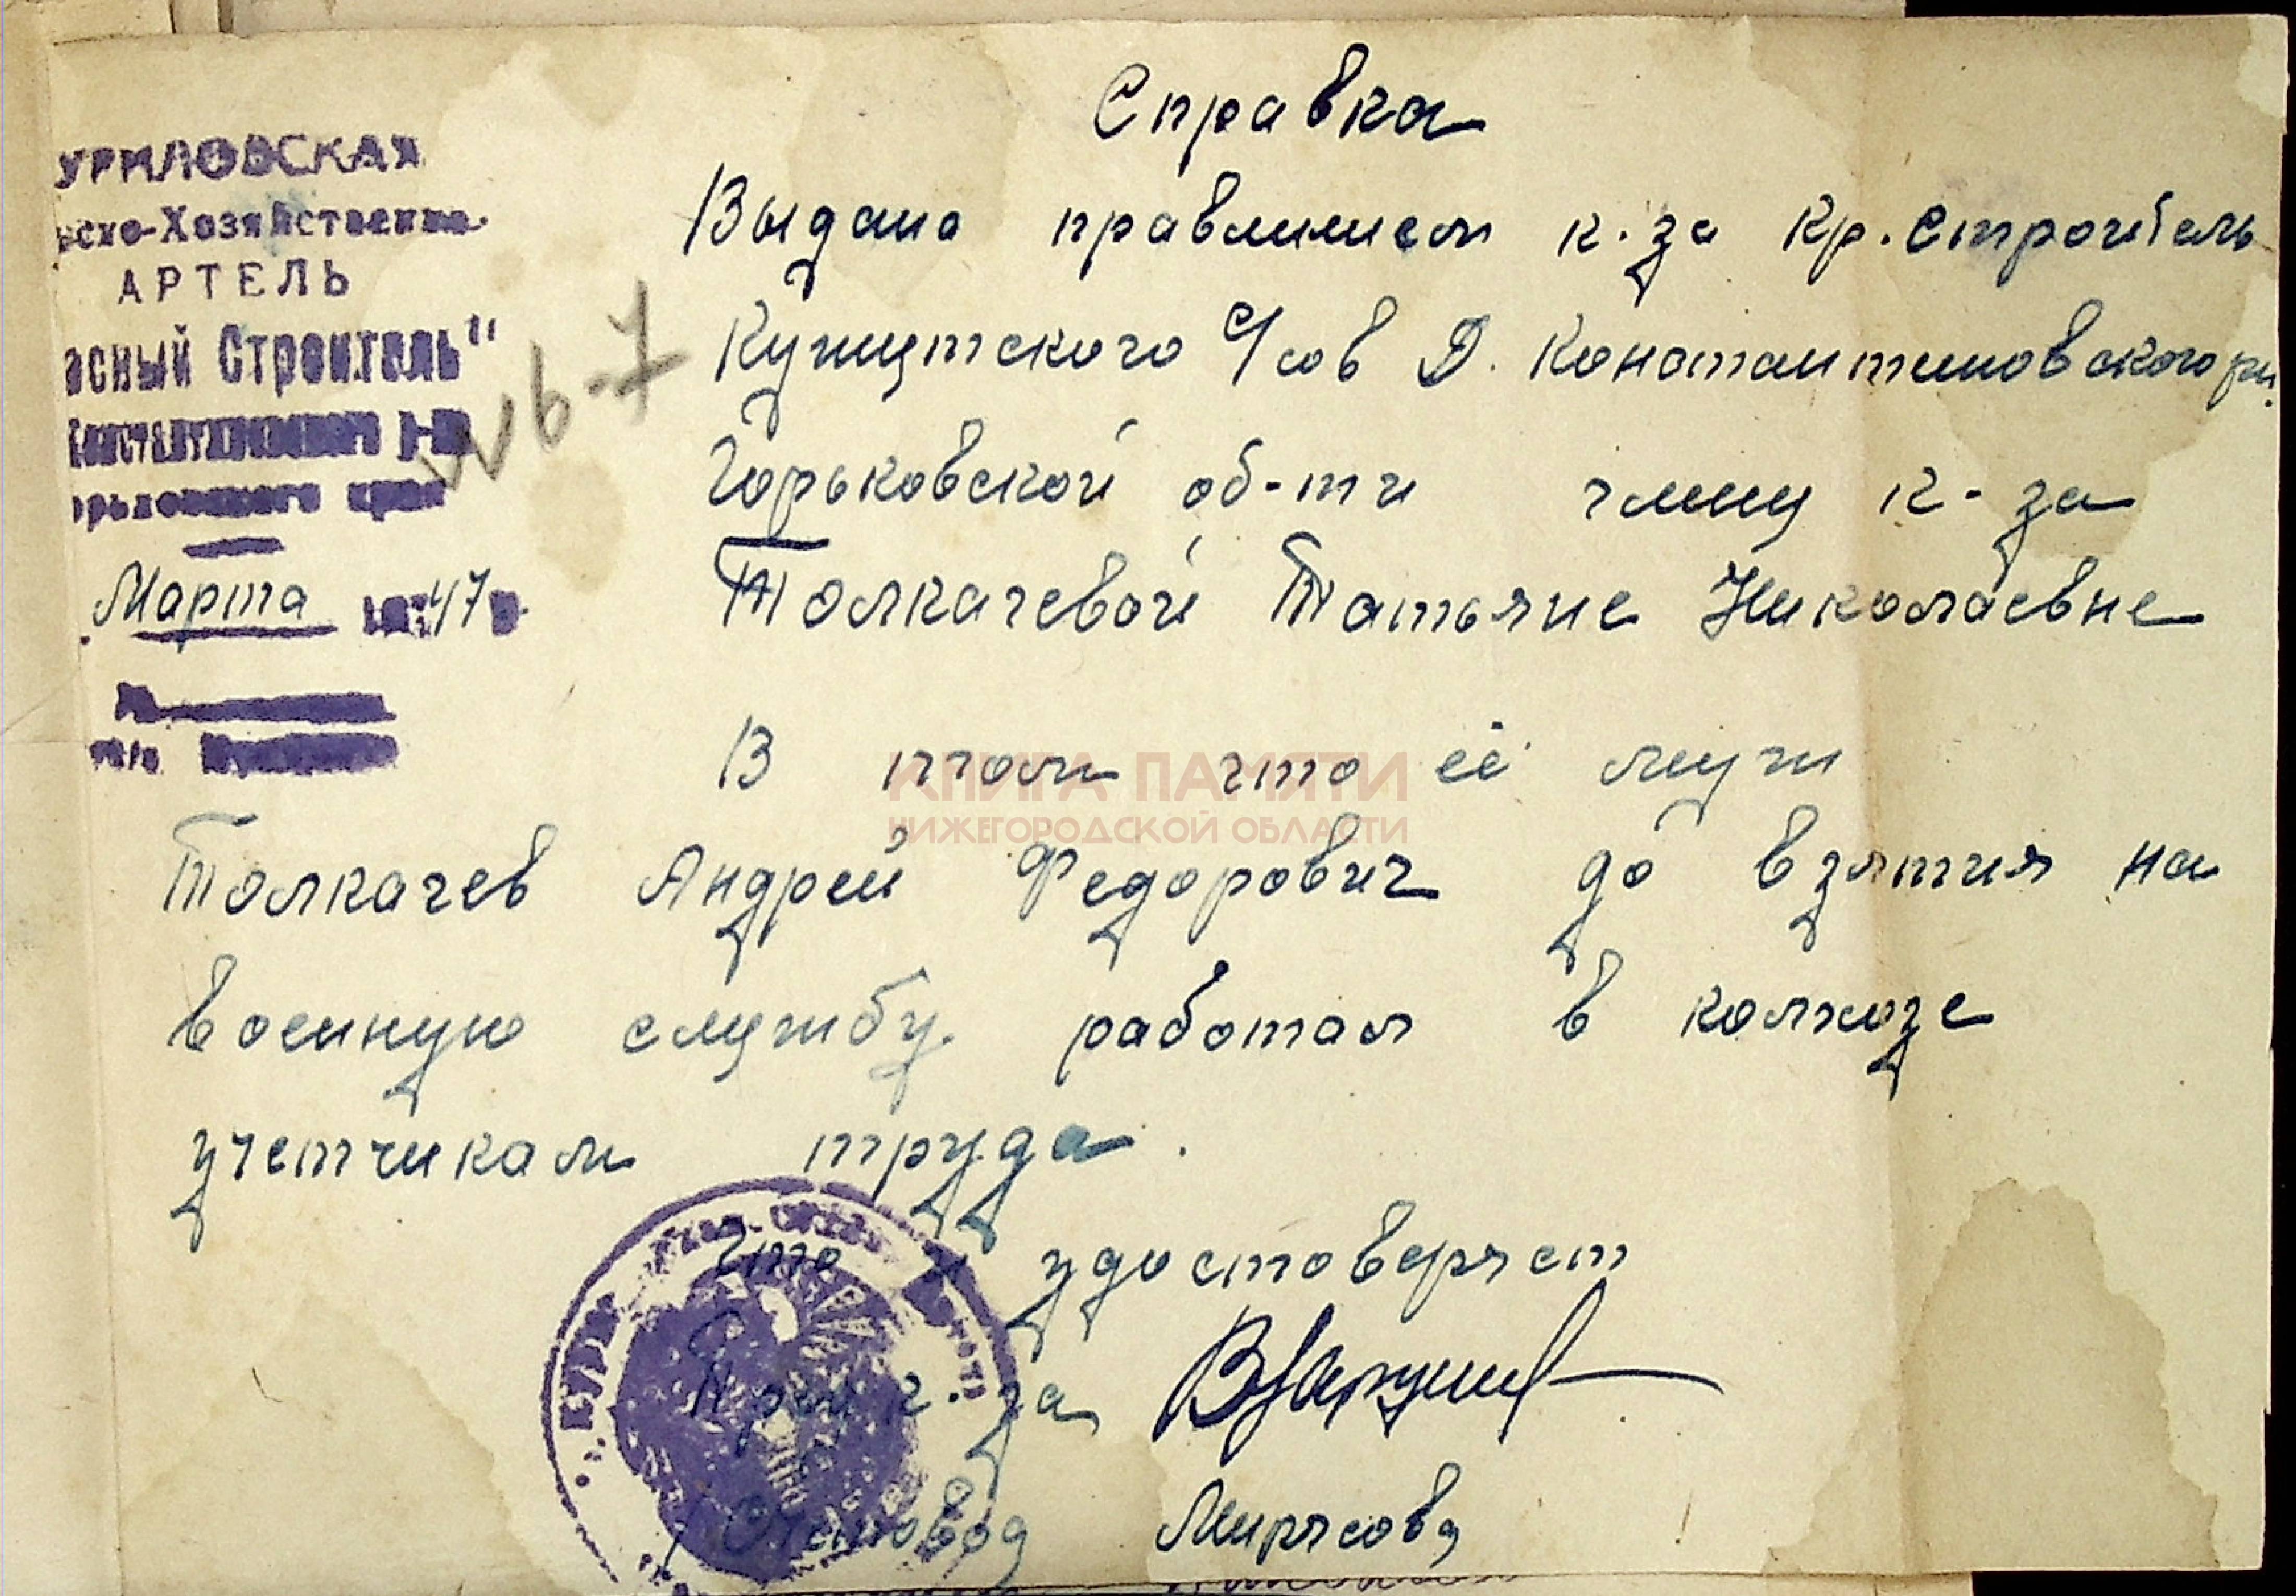 УРИЛОВСКАЯ
ьско-Хозяйственная
АРТЕЛЬ
асный Строитель"
Константиновского р-на
орьковского края
Марта 1947 г.
№6-7
Справка
Выдана правлением к-за Кр. Строитель
с/сов Д. Константиновского р-н.
Горьковской об-ти члену к-за
Толкачевой Татьяне Николаевне
В том что её муж
Толкачев Андрей Федорович до взятия на
военную службу работал в колхозе
учетчикам труда.
Что и удостоверяет
Пред к-за
Счетовод Мирясова
КНИГА ПАМЯТИ
НИЖЕГОРОДСКОЙ ОБЛАСТИ